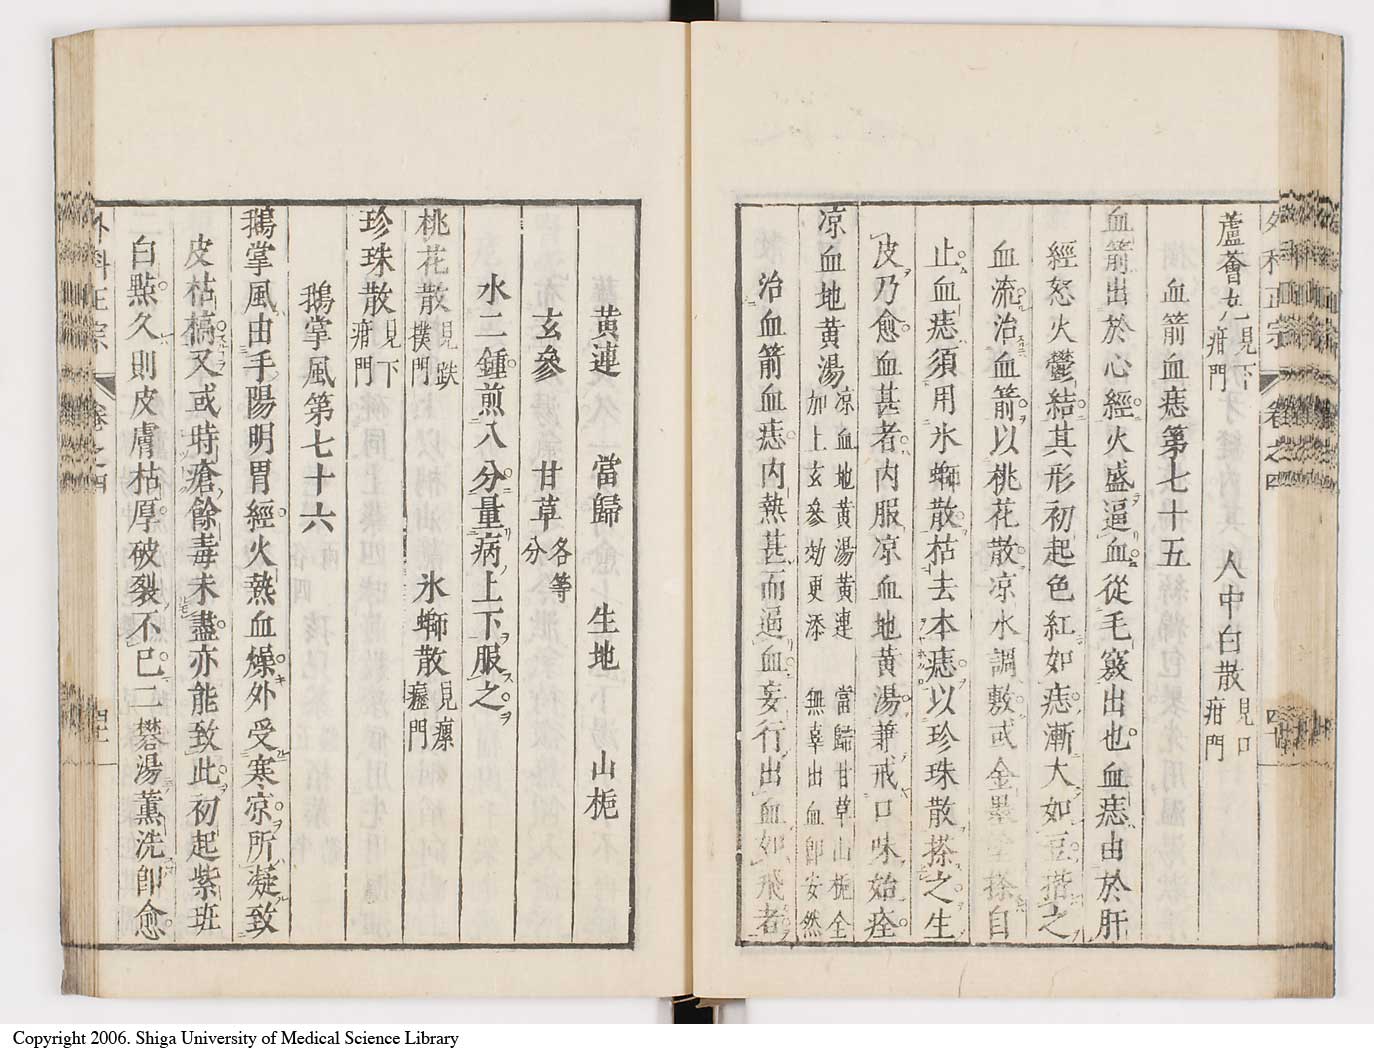 外科正宗 卷之四 四十
蘆薈丸 見下疳門 人中白散 見口疳門
血箭血痣第七十五
血箭出於心經火盛逼血從毛竅出也血痣由於肝
經怒火鬱結其形初起色紅如痣漸大如豆揩之
血流治血箭以桃花散凉水調敷或金墨塗搽自
止血痣須用氷螄散枯去本痣以珍珠散搽之生
皮乃愈血甚者內服凉血地黃湯兼戒口味始痊
凉血地黃湯 凉血地黃湯黃連 當歸甘草山梔全
加上玄參効更添 無辜出血卽安然
治血箭血痣內熱甚而逼血妄行出血如飛者
黃連 當歸 生地 山梔
玄參 甘草 各等分
水二鍾煎八分量病上下服之
桃花散 見跌撲門 氷螄散 見瘰癧門
珍珠散 見下疳門
鵝掌風第七十六
鵝掌風由手陽明胃經火熱血燥外受寒凉所凝致
皮枯槁又或時瘡餘毒未盡亦能致此初起紫斑
白點久則皮膚枯厚破裂不已二礬湯薰洗卽愈
外科正宗 卷之四 四十一
Copyright 2006. Shiga University of Medical Science Library